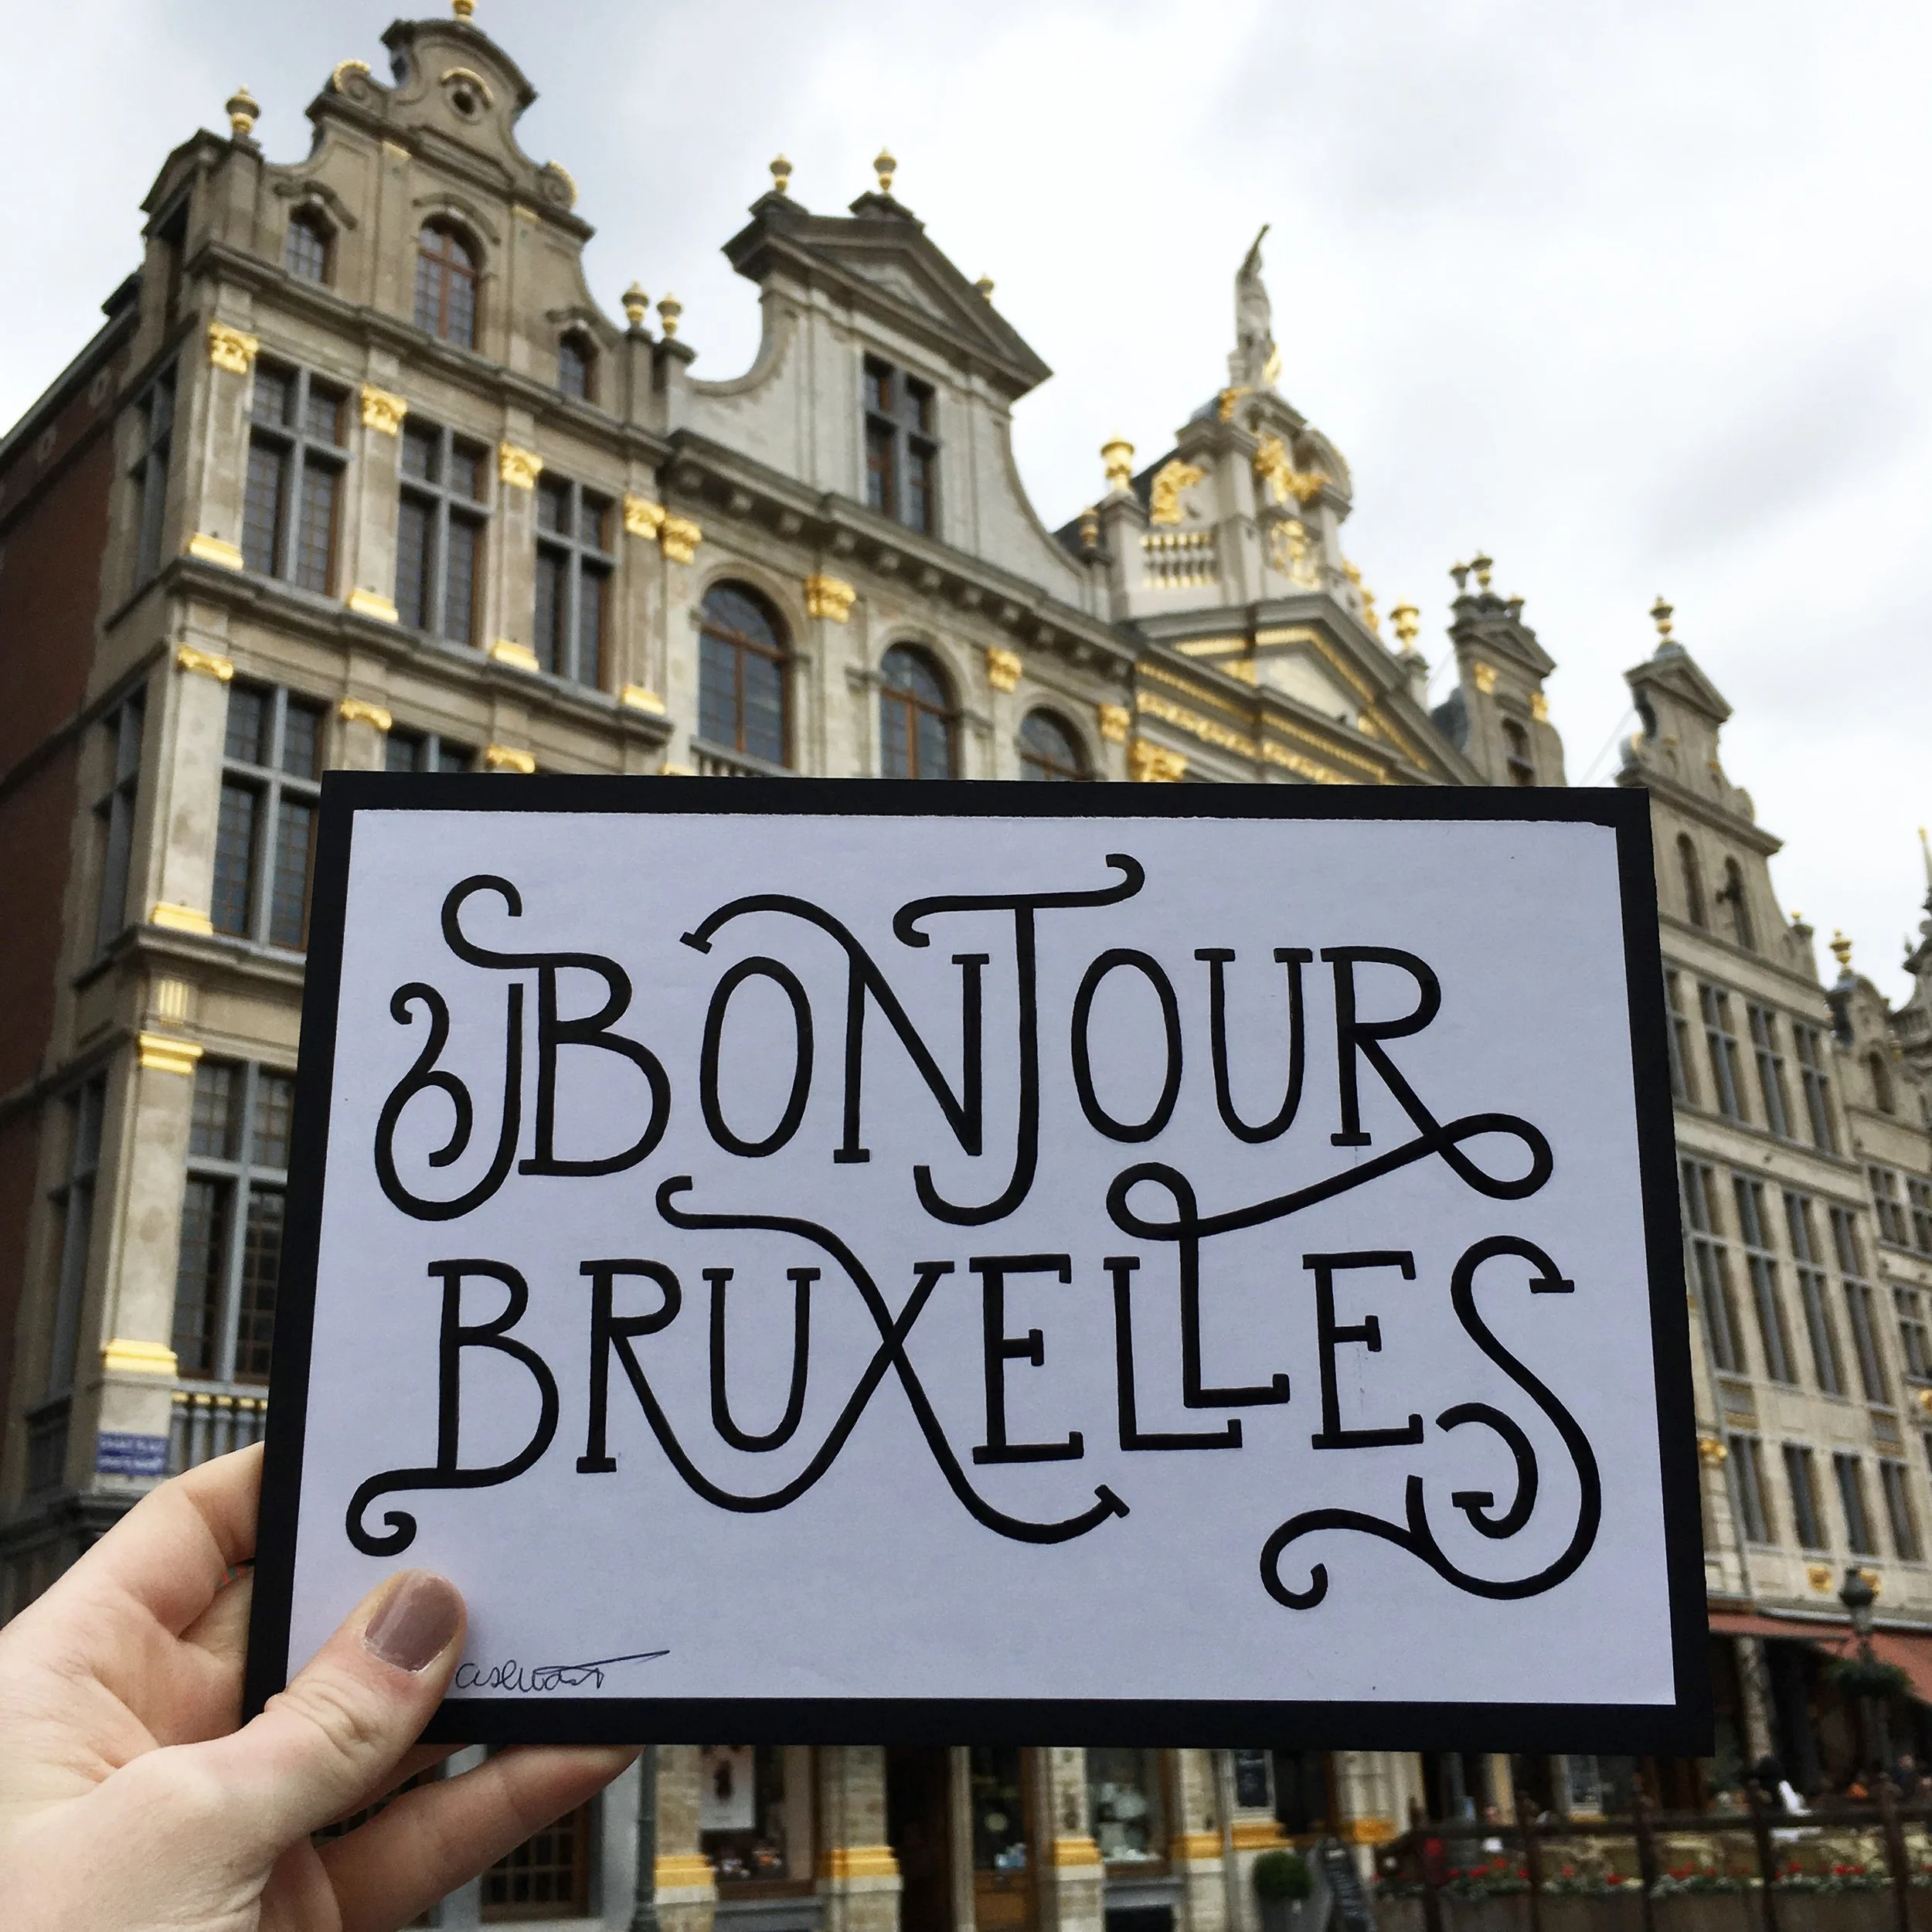 BONJOUR
BRUXELLES